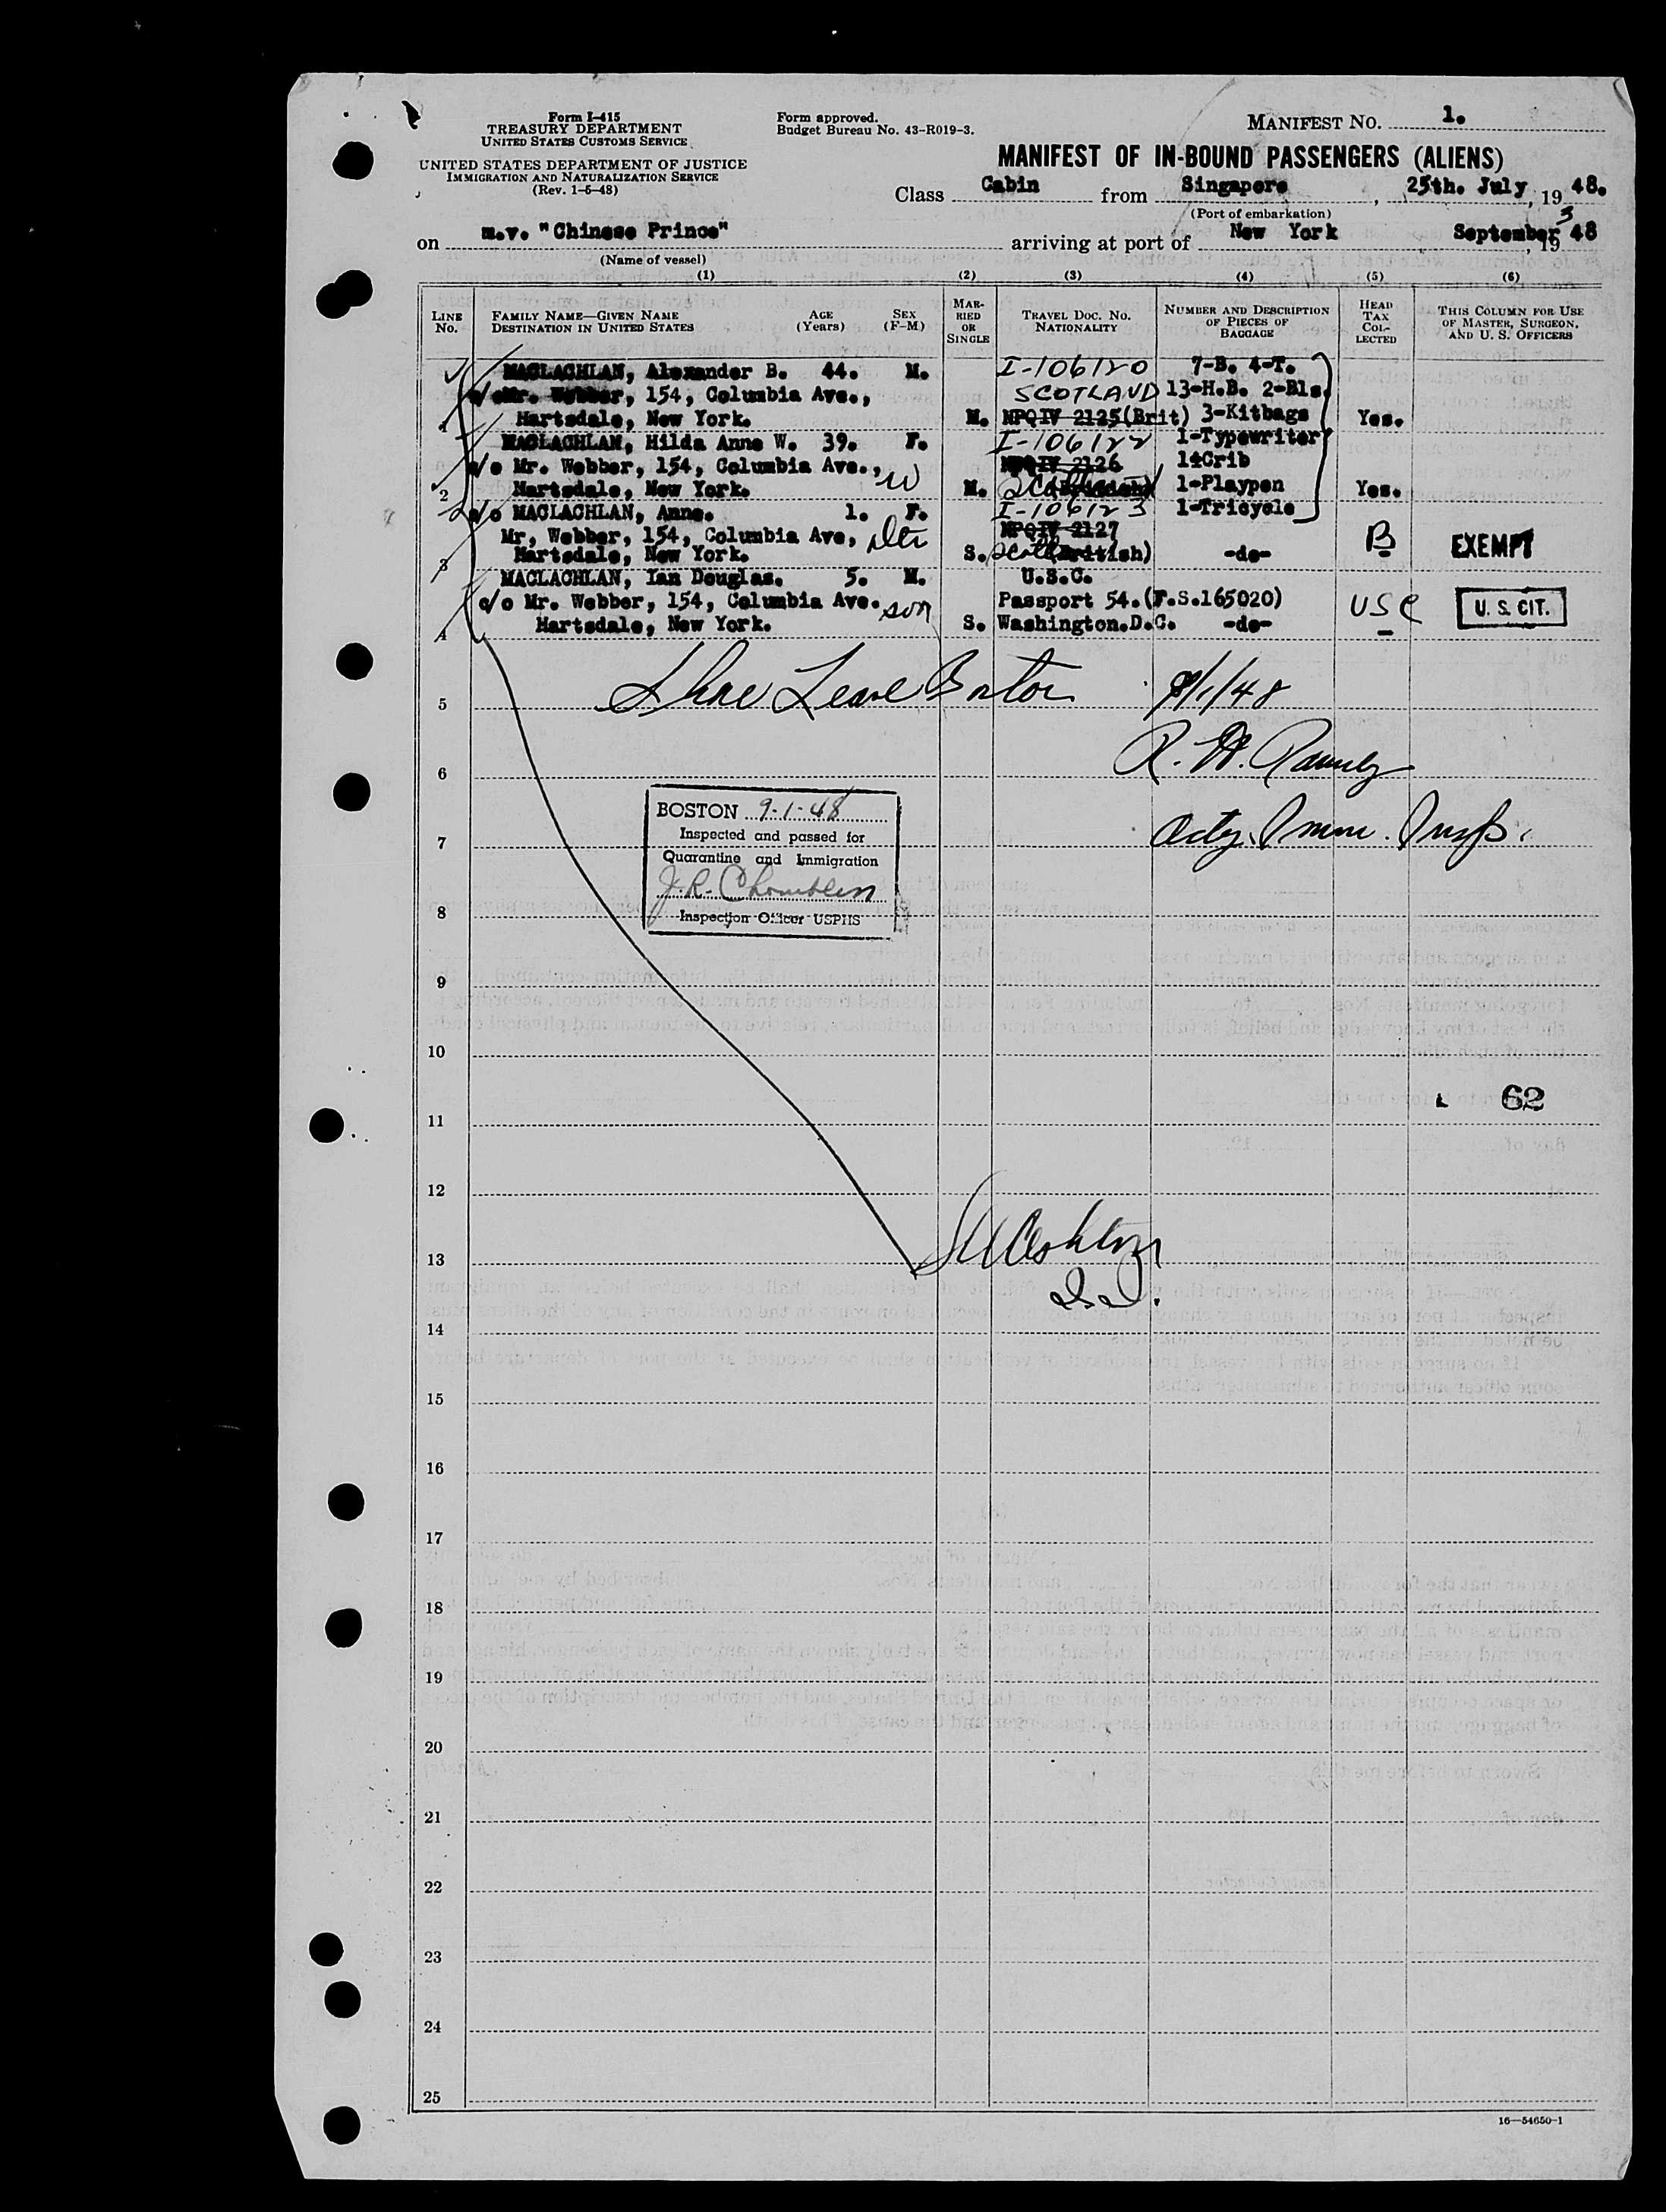 Form I-415
TREASURY DEPARTMENT
UNITED STATES CUSTOMS SERVICE
UNITED STATES DEPARTMENT OF JUSTICE
IMMIGRATION AND NATURALIZATION SERVICE
(Rev. 1-5-48)
Form approved.
Budget Bureau No. 43-R019-3.
MANIFEST NO. 1.
MANIFEST OF IN-BOUND PASSENGERS (ALIENS)
Class Cabin from Singapore, 25th. July, 19 48.
(Port of embarkation)
on m.v. "Chinese Prince" arriving at port of New York September 3, 19 48
(Name of vessel)
(1) (2) (3) (4) (5) (6)
LINE No.
FAMILY NAME—GIVEN NAME
DESTINATION IN UNITED STATES
AGE (Years)
SEX (F-M)
MARRIED OR SINGLE
TRAVEL DOC. NO. NATIONALITY
NUMBER AND DESCRIPTION OF PIECES OF BAGGAGE
HEAD TAX COLLECTED
THIS COLUMN FOR USE OF MASTER, SURGEON, AND U. S. OFFICERS
MACLACHLAN, Alexander B. 44. M. I-106120 7-B. 4-T.
c/o Mr. Webber, 154, Columbia Ave., SCOTLAND 13-H.B. 2-Bls.
1 Hartsdale, New York. M. NPQIV 2125(Brit) 3-Kitbags Yes.
MACLACHLAN, Hilda Anne W. 39. F. I-106122 1-Typewriter
c/o Mr. Webber, 154, Columbia Ave., W NPQIV 2126 1-Crib
2 Hartsdale, New York. M. 1-Playpen Yes.
c/o MACLACHLAN, Anne. 1. F. I-106123 1-Tricycle
Mr, Webber, 154, Columbia Ave, dtr NPQIV 2127 B EXEMPT
3 Hartsdale, New York. S. Scot (British) -do-
MACLACHLAN, Ian Douglas. 5. M. U.S.C.
c/o Mr. Webber, 154, Columbia Ave. son Passport 54.(F.S.165020) USC U. S. CIT.
4 Hartsdale, New York. S. Washington.D.C. -do-
5 Shore Leave Boston 9/1/48
6 R. W.
BOSTON 9-1-48
Inspected and passed for
7 Actg. Imm. Insp.
Quarantine and Immigration
J.R.
8 Inspection Officer USPHS
9
10
62
11
12
13
14
15
16
17
18
19
20
21
22
23
24
25
16—54650-1